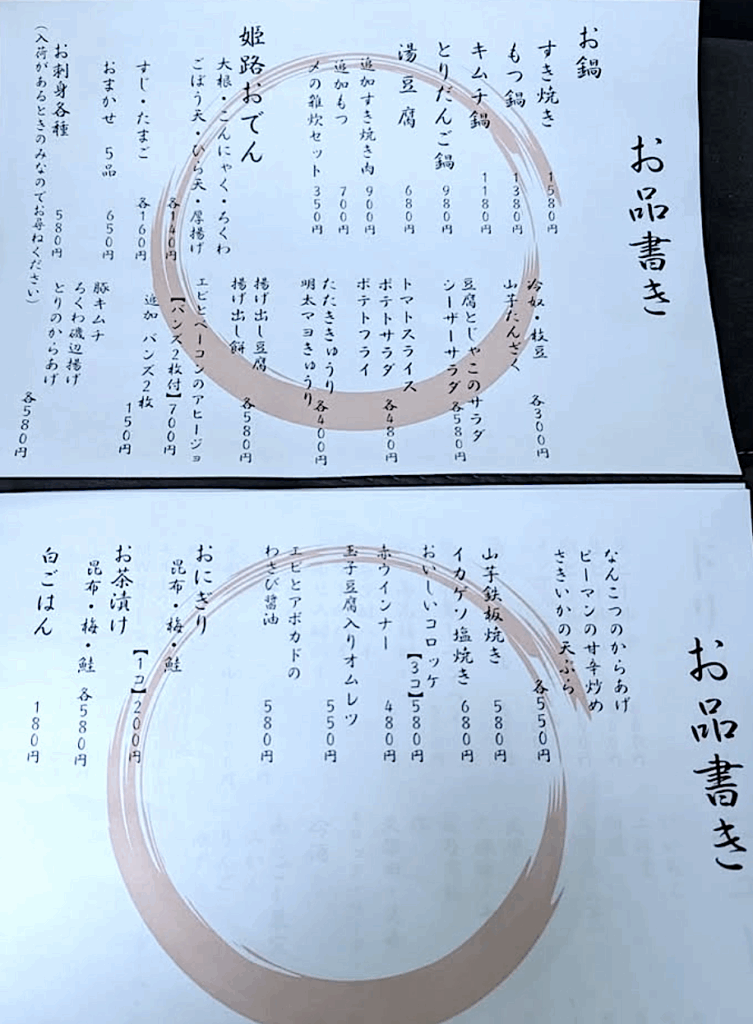 お品書き
お鍋
すき焼き 1580円
もつ鍋 1380円
キムチ鍋 1180円
とりだんご鍋 980円
湯豆腐 680円
追加すき焼き肉 900円
追加もつ 700円
〆の雑炊セット 350円
姫路おでん
大根・こんにゃく・ちくわ
ごぼう天・ひら天・厚揚げ
各140円
すじ・たまご 各160円
おまかせ 5品 650円
お刺身各種 580円
(入荷があるときのみなのでお尋ねください)
冷奴・枝豆
山芋たんざく
各300円
豆腐とじゃこのサラダ
シーザーサラダ
各580円
トマトスライス
ポテトサラダ
ポテトフライ
各480円
たたききゅうり
明太マヨきゅうり
各400円
揚げ出し豆腐
揚げ出し餅
各580円
エビとベーコンのアヒージョ
【バンズ2枚付】700円
追加 バンズ2枚
150円
豚キムチ
ちくわ磯辺揚げ
とりのからあげ
各580円
お品書き
なんこつのからあげ
ピーマンの甘辛炒め
さきいかの天ぷら
各550円
山芋鉄板焼き 580円
イカゲソ塩焼き 680円
おいしいコロッケ
【3コ】580円
赤ウインナー 480円
玉子豆腐入りオムレツ
550円
エビとアボカドの
わさび醤油
580円
おにぎり
昆布・梅・鮭
【1コ】200円
お茶漬け
昆布・梅・鮭 各580円
白ごはん 180円